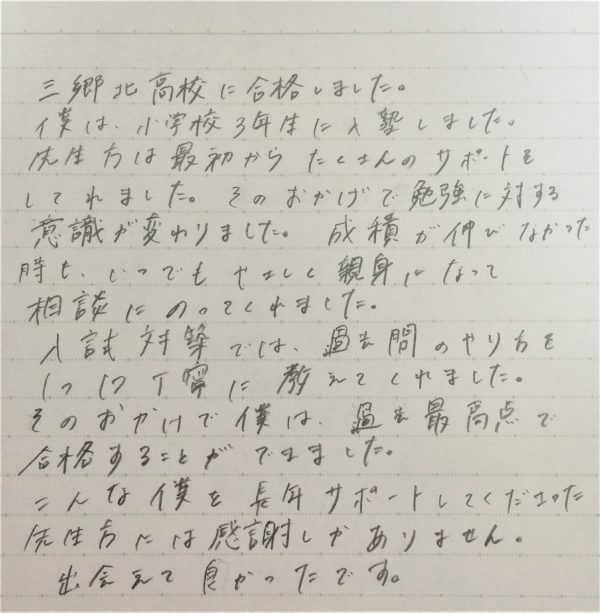 三郷北高校に合格しました。
僕は、小学校3年生に入塾しました。
先生方は最初からたくさんのサポートを
してれました。そのおかげで勉強に対する
意識が変わりました。成積が伸びなかった
時も、いつでもやさしく親身になって
相談にのってくれました。
入試対築では、過去問のやり方を
1つ1つ丁寧に教えてくれました。
そのおかげで僕は、過去最高点で
合格することができました。
こんな僕を長年サポートしてくださった
先生方には感謝しかありません。
出会えて良かったです。